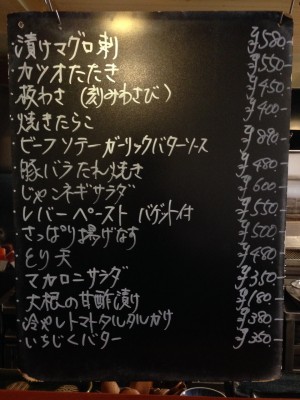 漬けマグロ刺 ¥580-
カツオたたき ¥550-
板わさ (刻みわさび) ¥450
焼きたらこ ¥400-
ビーフソテーガーリックバターソース ¥890-
豚バラたれ焼き ¥480
じゃこネギサラダ ¥600-
レバーペースト バゲット付 ¥550-
さっぱり揚げなす ¥500
とり天 ¥480
マカロニサラダ ¥350
大根の甘酢漬け ¥180
冷やしトマトタルタルがけ ¥380
いちじくバター ¥350-